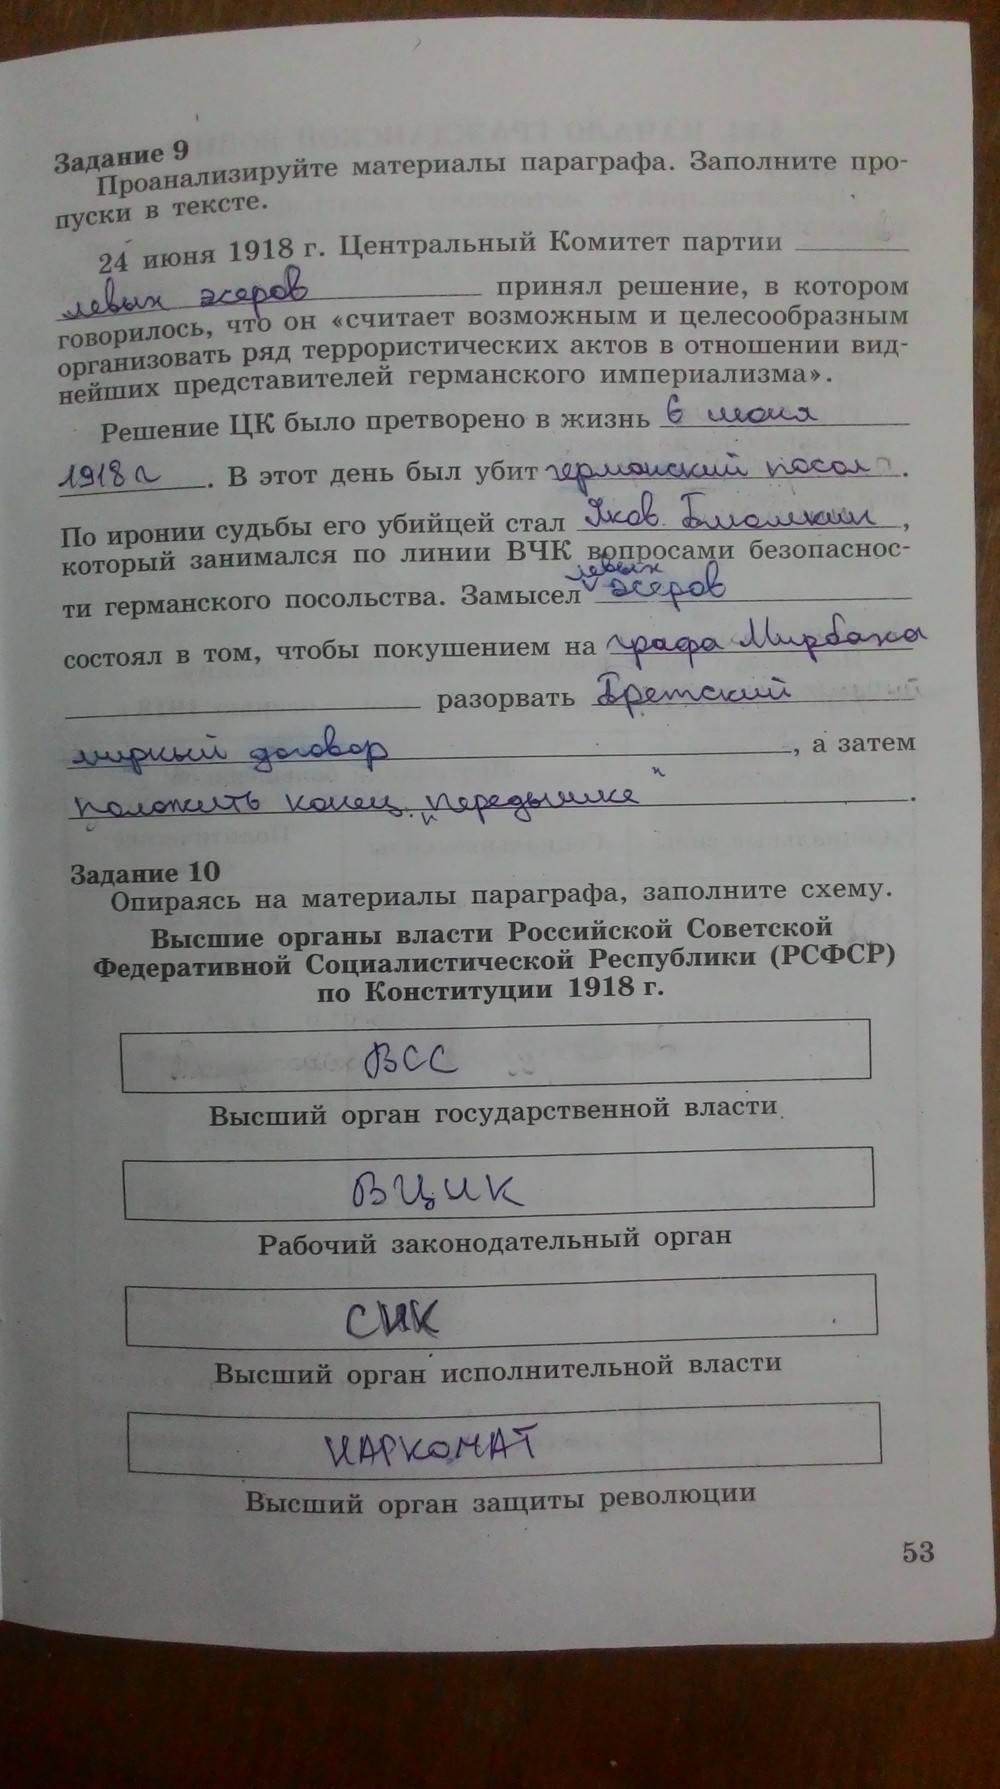 Задание 9
Проанализируйте материалы параграфа. Заполните про-
пуски в тексте.
24 июня 1918 г. Центральный Комитет партии
левых эсеров принял решение, в котором
говорилось, что он «считает возможным и целесообразным
организовать ряд террористических актов в отношении вид-
нейших представителей германского империализма».
Решение ЦК было претворено в жизнь 6 июля
1918 г. В этот день был убит германский посол.
По иронии судьбы его убийцей стал Яков Блюмкин,
который занимался по линии ВЧК вопросами безопаснос-
левых
ти германского посольства. Замысел эсеров
состоял в том, чтобы покушением на графа Мирбаха
разорвать Бретский
мирный договор, а затем
положить конец "передышке".
Задание 10
Опираясь на материалы параграфа, заполните схему.
Высшие органы власти Российской Советской
Федеративной Социалистической Республики (РСФСР)
по Конституции 1918 г.
ВСС
Высший орган государственной власти
ВЦИК
Рабочий законодательный орган
СНК
Высший орган исполнительной власти
НАРКОМАТ
Высший орган защиты революции
53